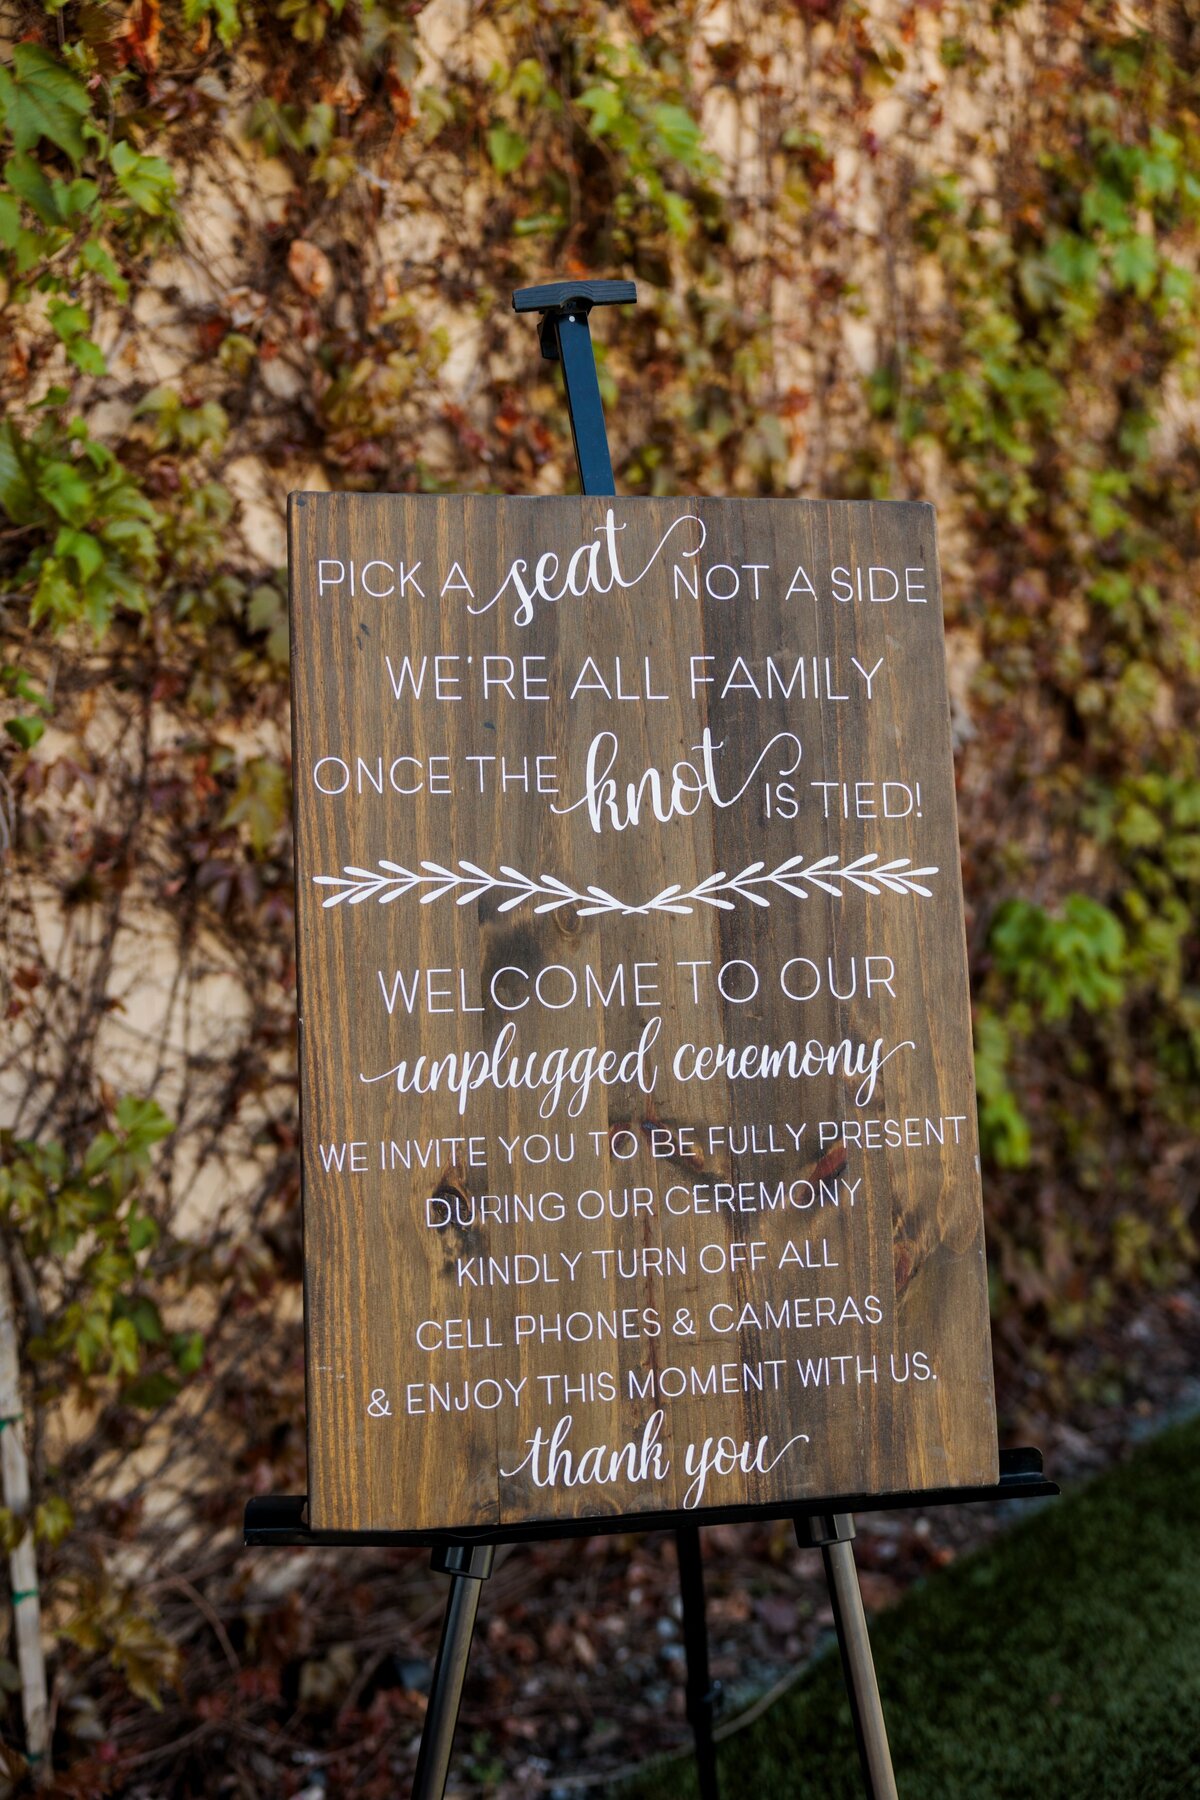 PICK A seat NOT A SIDE
WE'RE ALL FAMILY
ONCE THE knot IS TIED!
WELCOME TO OUR
unplugged ceremony
WE INVITE YOU TO BE FULLY PRESENT
DURING OUR CEREMONY
KINDLY TURN OFF ALL
CELL PHONES & CAMERAS
& ENJOY THIS MOMENT WITH US.
thank you